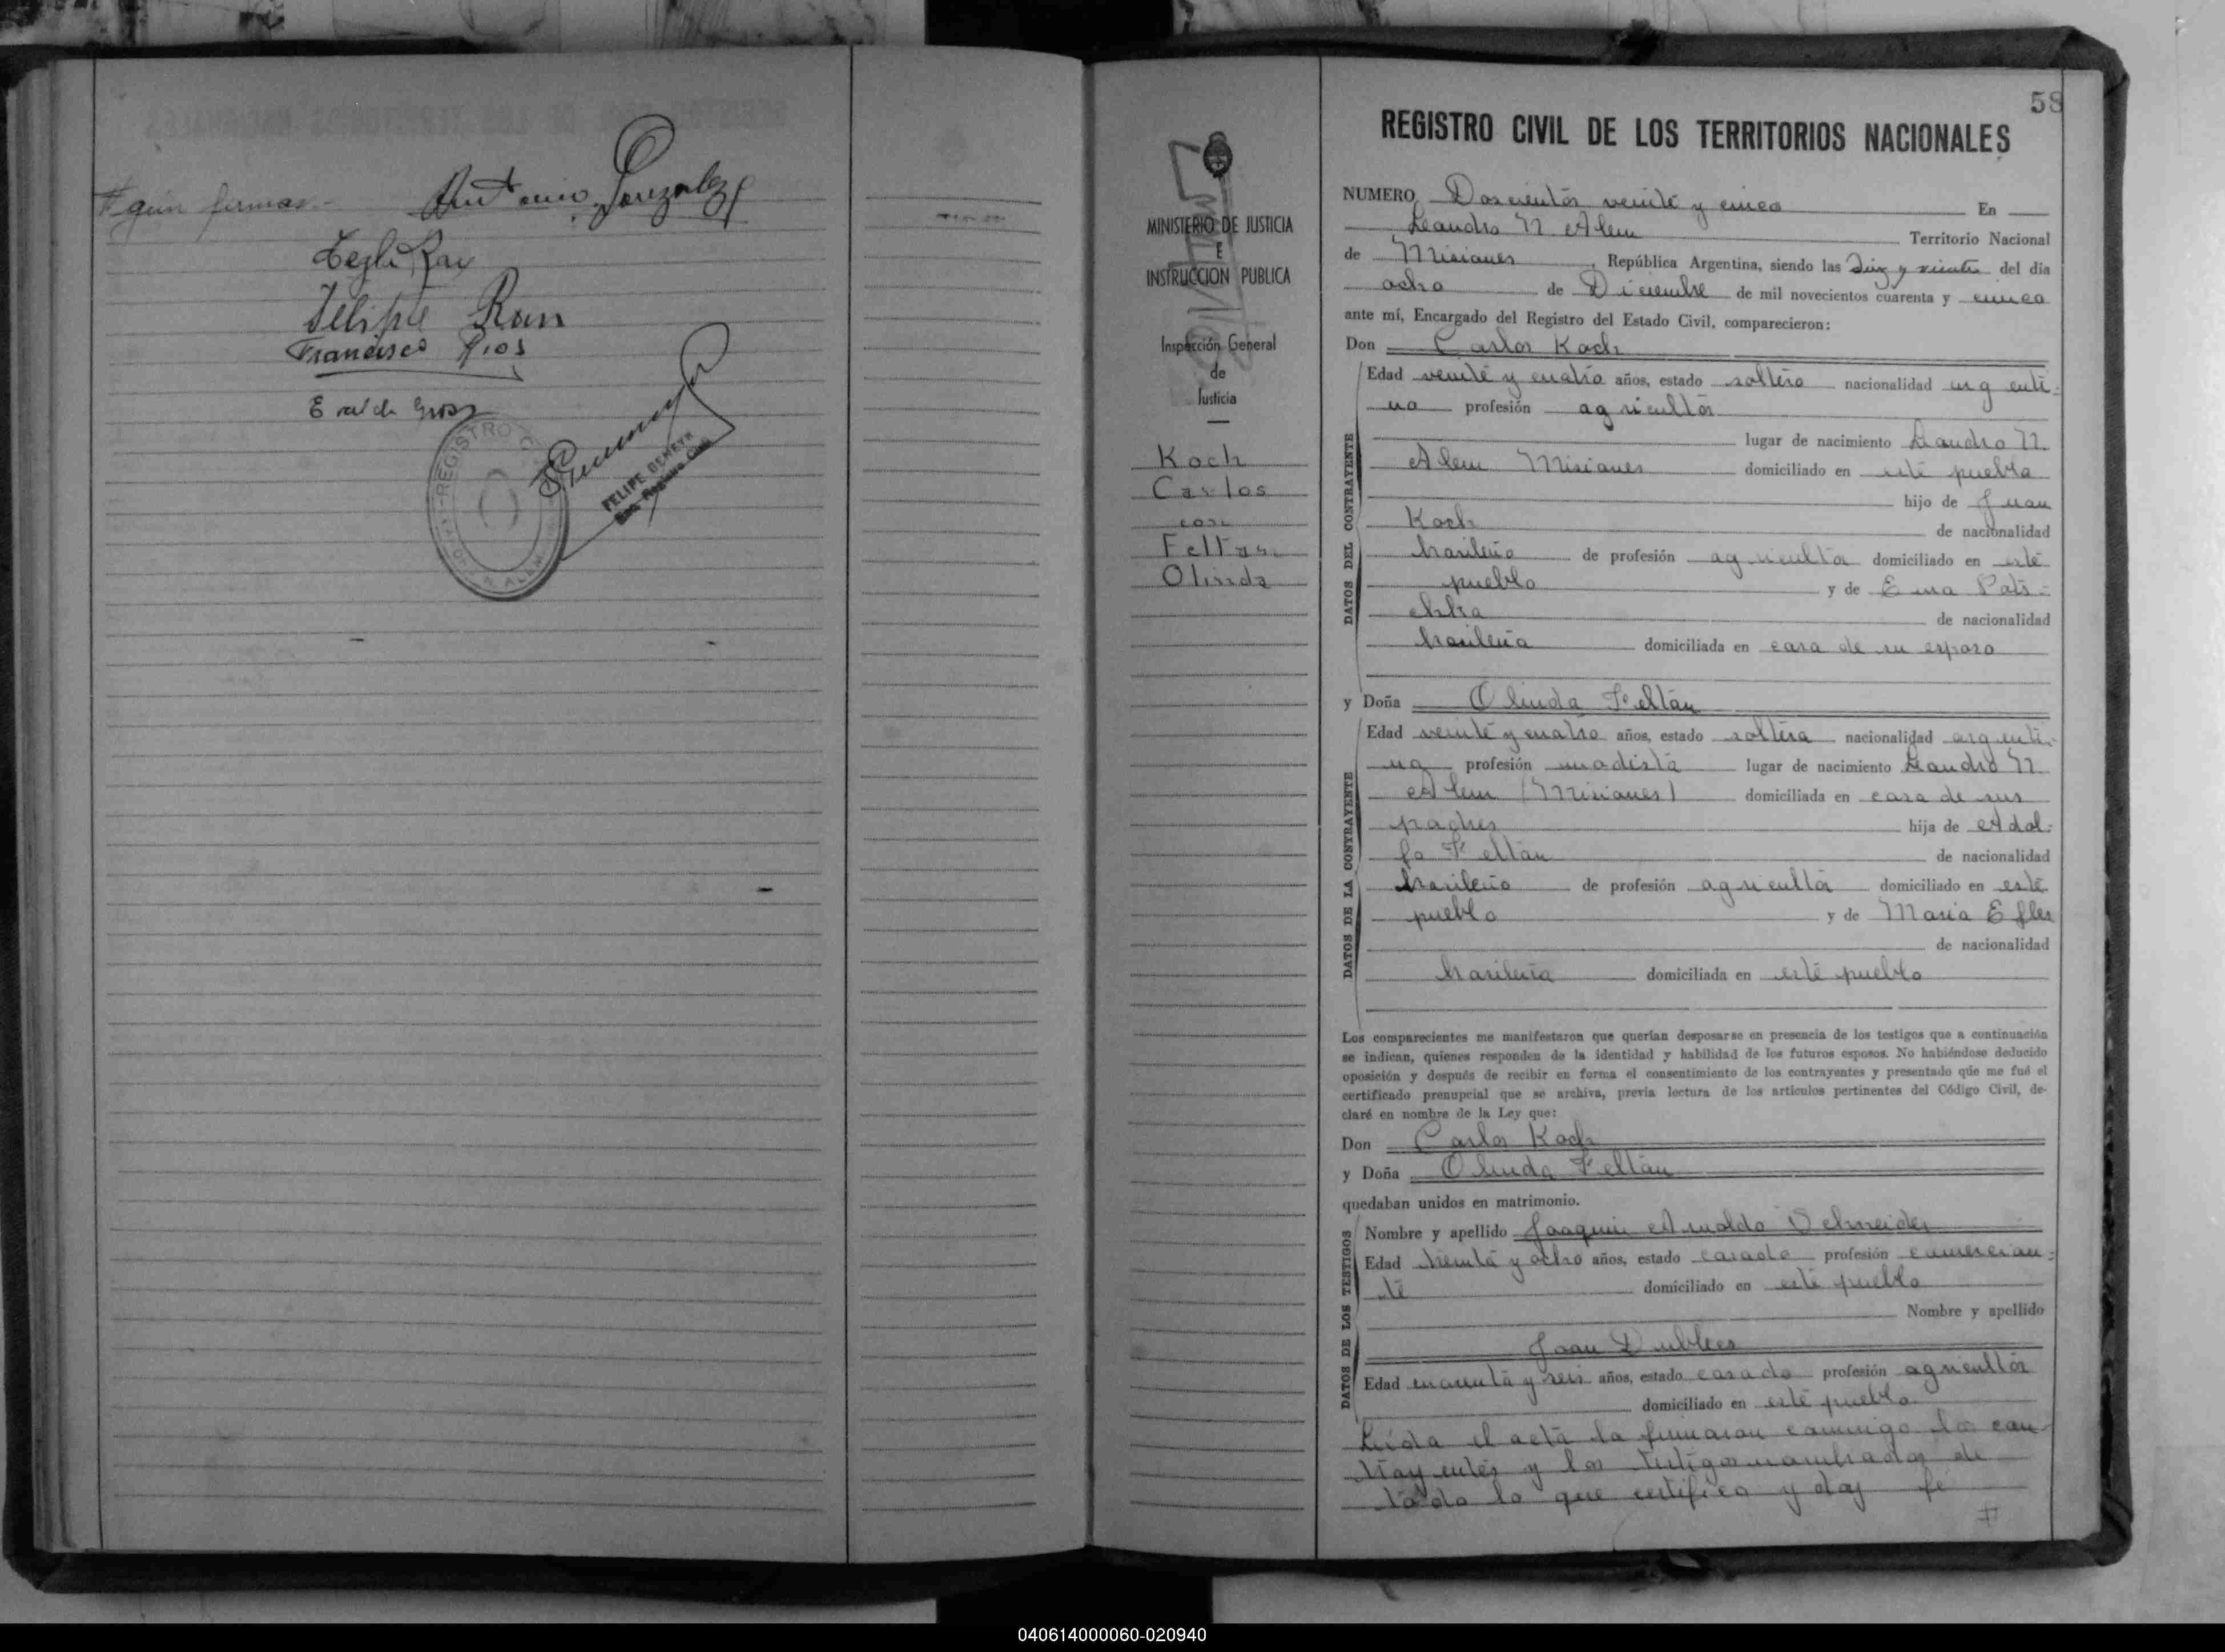 # guen firmas.-
Antonio Gonzalez
Felipe Rau
Francisco Rios
REGISTRO
N. ALEM
FELIPE BENEYR
MINISTERIO DE JUSTICIA
E
INSTRUCCION PUBLICA
Inspección General
de
Justicia
Koch
Carlos
con
Feltan
Olinda
58
REGISTRO CIVIL DE LOS TERRITORIOS NACIONALES
NUMERO Doscientos veinte y cinco En
Leandro N. Alem Territorio Nacional
de Misiones, República Argentina, siendo las diez y veinte del día
ocho de Diciembre de mil novecientos cuarenta y cinco
ante mí, Encargado del Registro del Estado Civil, comparecieron:
Don Carlos Koch
Edad veinte y cuatro años, estado soltero nacionalidad argenti-
no profesión agricultor
lugar de nacimiento Leandro N.
Alem Misiones domiciliado en este pueblo
hijo de Juan
Koch de nacionalidad
brasileño de profesión agricultor domiciliado en este
pueblo y de Ema Pats-
chka de nacionalidad
brasileña domiciliada en casa de su esposo
DATOS DEL CONTRAYENTE
y Doña Olinda Feltan
Edad veinte y cuatro años, estado soltera nacionalidad argenti-
na profesión modista lugar de nacimiento Leandro N.
Alem (Misiones) domiciliada en casa de sus
padres hija de Adol-
fo Feltan de nacionalidad
brasileño de profesión agricultor domiciliado en este
pueblo y de Maria Efler
de nacionalidad
brasileña domiciliada en este pueblo
DATOS DE LA CONTRAYENTE
Los comparecientes me manifestaron que querían desposarse en presencia de los testigos que a continuación
se indican, quienes responden de la identidad y habilidad de los futuros esposos. No habiéndose deducido
oposición y después de recibir en forma el consentimiento de los contrayentes y presentado que me fué el
certificado prenupcial que se archiva, previa lectura de los artículos pertinentes del Código Civil, de-
claré en nombre de la Ley que:
Don Carlos Koch
y Doña Olinda Feltan
quedaban unidos en matrimonio.
Nombre y apellido Joaquin Arnoldo Schneider
Edad treinta y ocho años, estado casado profesión comercian-
te domiciliado en este pueblo
Nombre y apellido
Juan Dublees
Edad cuarenta y seis años, estado casado profesión agricultor
domiciliado en este pueblo.
DATOS DE LOS TESTIGOS
Leida el acta la firmaron conmigo los con-
trayentes y los testigos nombrados de
todo lo que certifico y doy fe
#
040614000060-020940